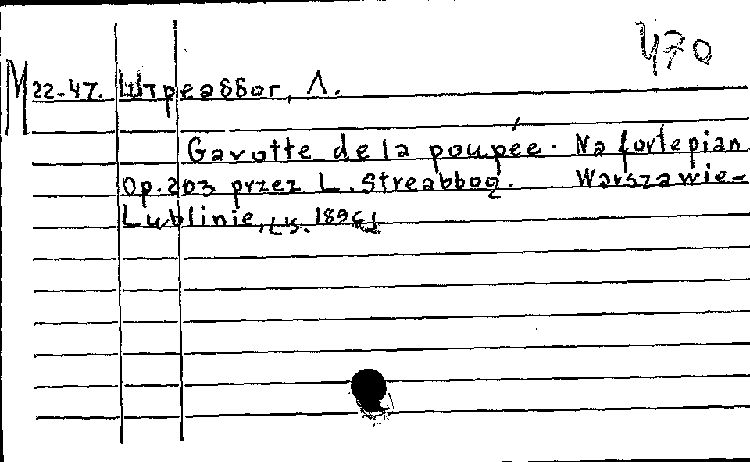 470
M 22-47. Штреаббог, Л.
Gavotte de la poupée. Na fortepian
Op. 203 przez L. Streabbog. Warszawie-
Lublinie, 1896